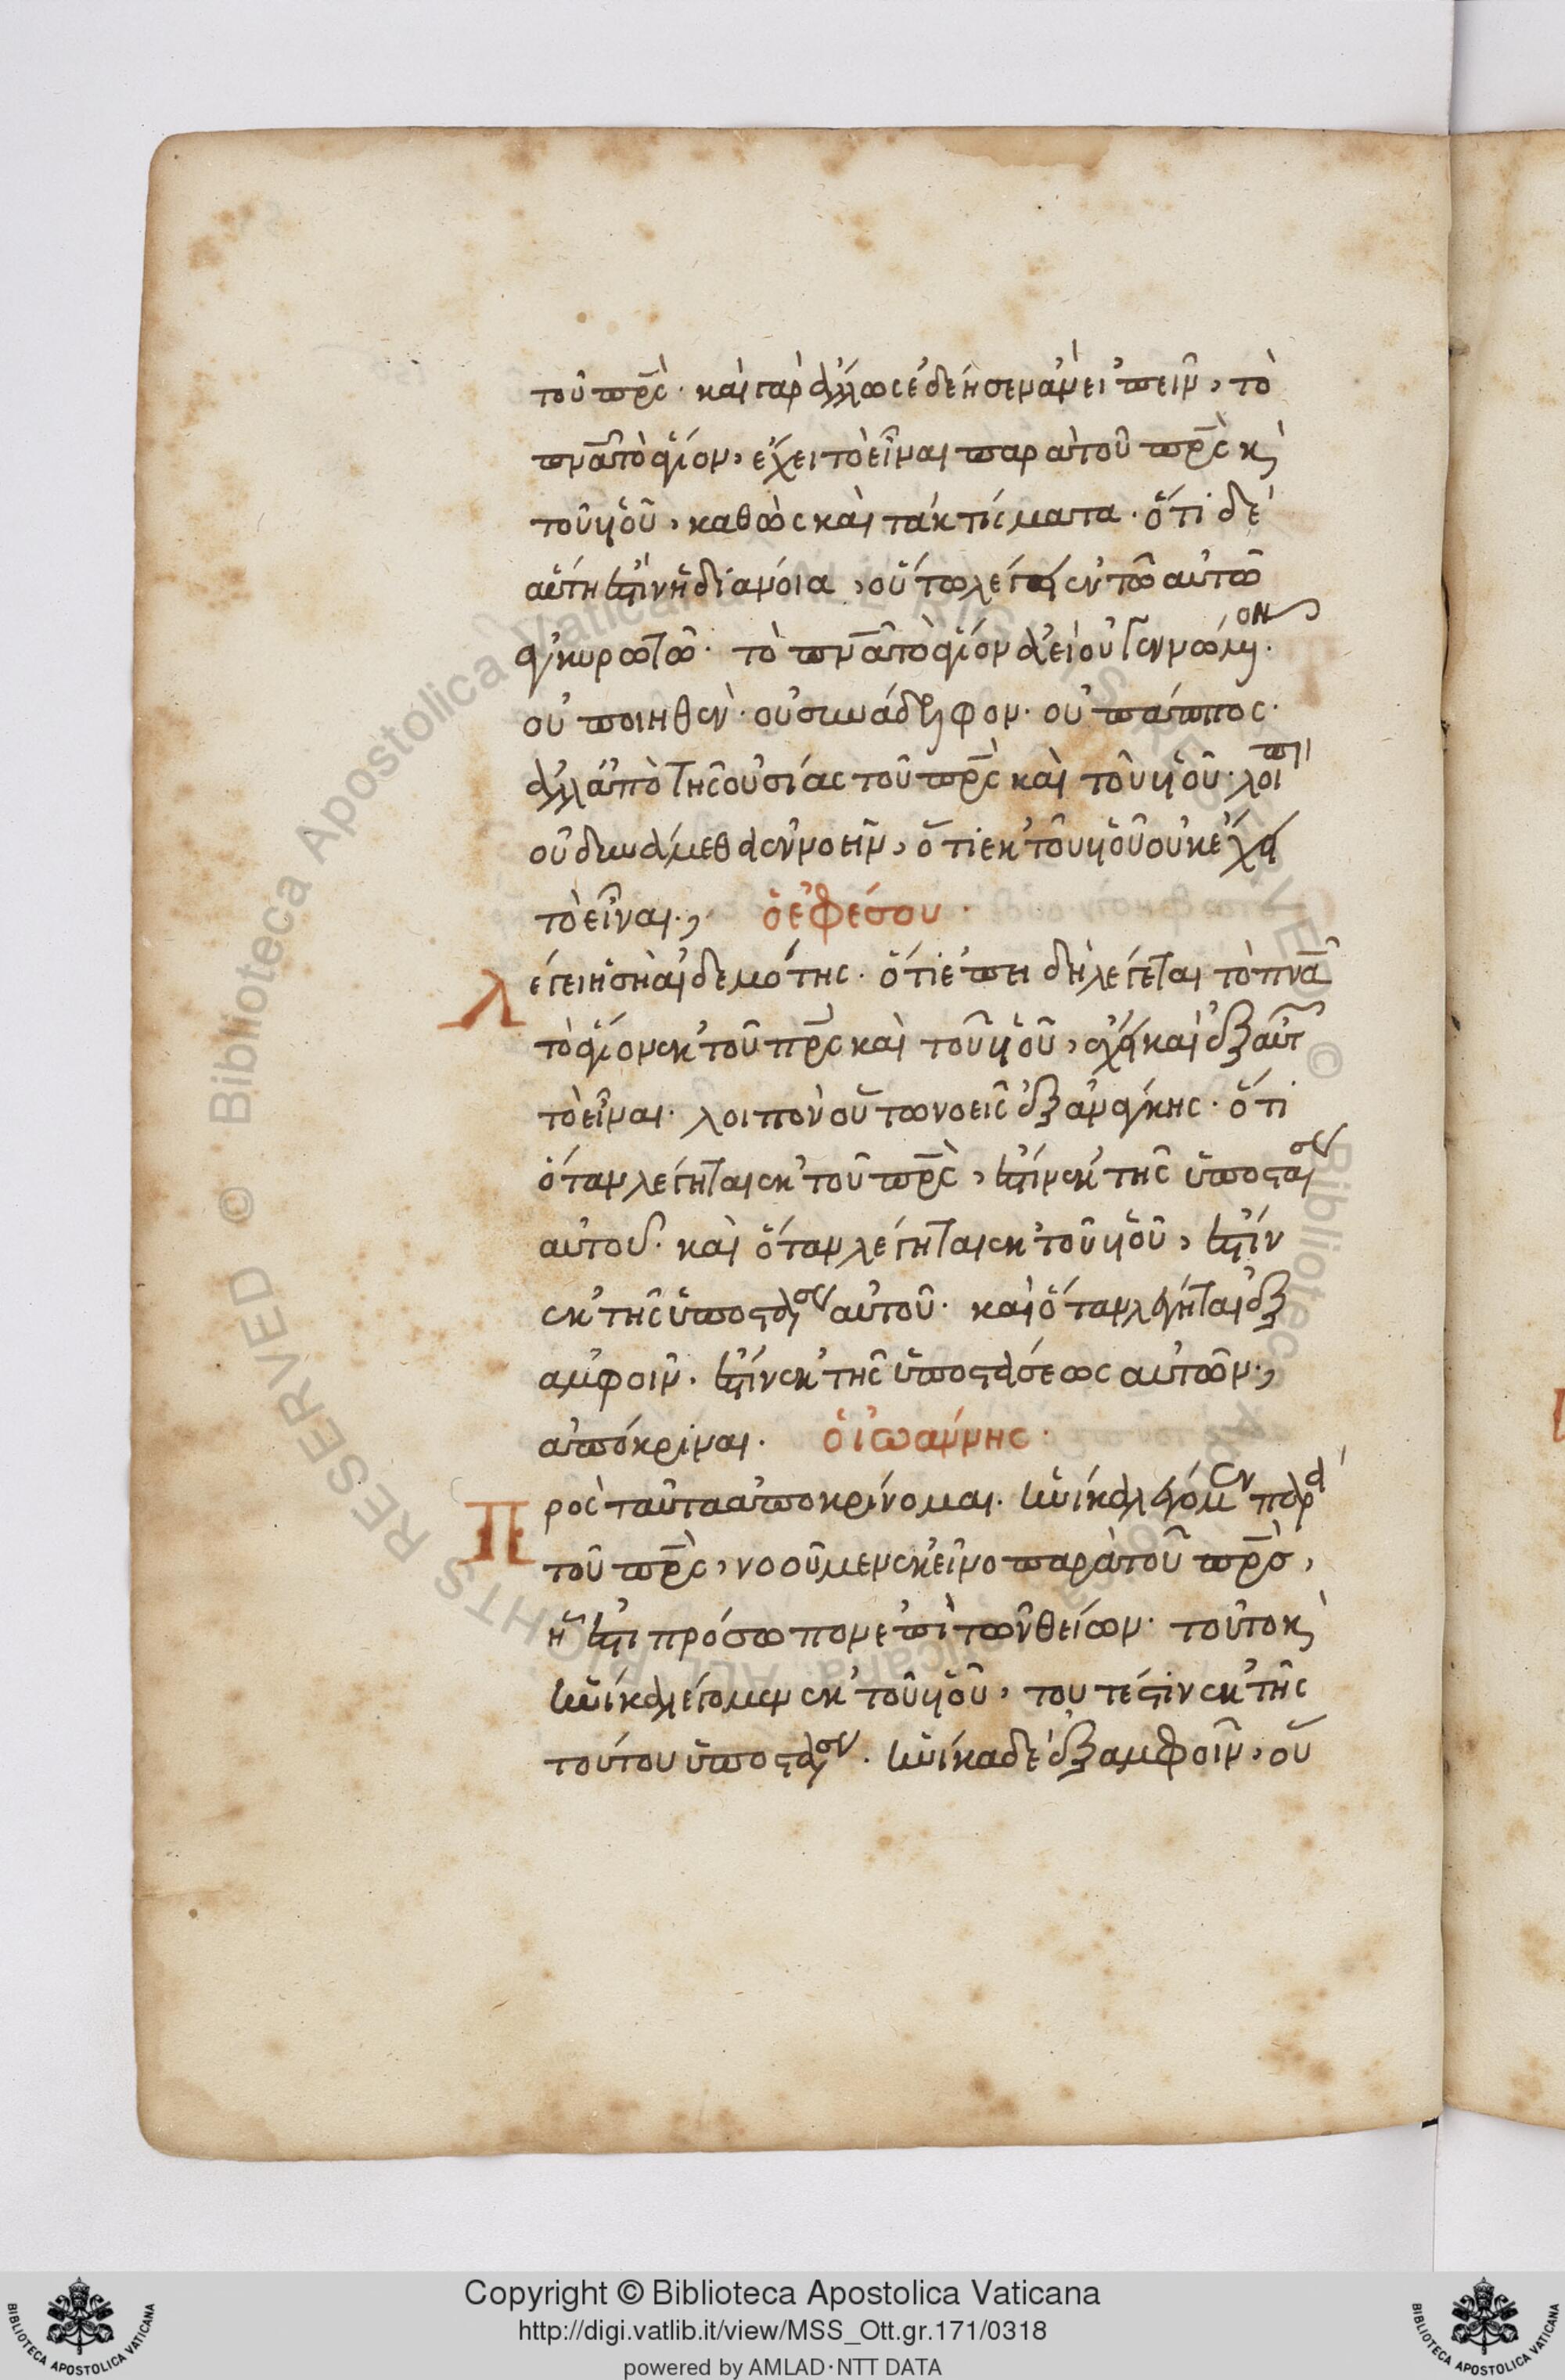 τοῦ πρς̀. καὶ γὰρ ἄλλως ἐδέησεν ἂν εἰπεῖν, τὸ
πνᾶ τὸ ἅγιον, ἔχει τὸ εἶναι παρὰ τοῦ πρς̀ κ̀
τοῦ ὑοῦ, καθὼς καὶ τὰ κτίσματα. ὅτι δὲ
αὕτη ἐστὶν ἡ διάνοια, οὕτω λέγει ἐν τῶ αὐτῶ
ἀγκυρωτῶ. τὸ πνᾶ τὸ ἅγιον ἀεὶ οὐ γεννώμενον.
οὐ ποιηθὲν. οὐ συνάδελφον. οὐ πάππος.
ἀλλ' ἀπὸ τῆς οὐσίας τοῦ πρς̀ καὶ τοῦ ὑοῦ. λοιπ
οὐ δυνάμεθα ἐννοεῖν, ὅτι ἐκ τοῦ ὑοῦ οὐκ ἔχει
τὸ εἶναι., ὁ ἐφέσου.
λέγει ἡ σὴ αἰδεμότης. ὅτι ἐπεὶ δὴ λέγεται τὸ πνᾶ
τὸ ἅγιον ἐκ τοῦ πρς̀ καὶ τοῦ ὑοῦ, ἔχει καὶ ἐξ αὐτ
τὸ εἶναι. λοιπὸν οὕτω νοεῖς ἐξ ἀνάγκης. ὅτι
ὅταν λέγηται ἐκ τοῦ πρς̀, ἐστὶν ἐκ τῆς ὑποστάσεως
αὐτοῦ. καὶ ὅταν λέγηται ἐκ τοῦ ὑοῦ, ἐστὶν
ἐκ τῆς ὑποστάσεως αὐτοῦ. καὶ ὅταν λέγηται ἐξ
ἀμφοῖν. ἐστὶν ἐκ τῆς ὑποστάσεως αὐτῶν.,
ἀπόκριναι. ὁ ἰωάννης.
Πρὸς ταῦτα ἀποκρίνομαι. ἡνίκα λέγομεν παρὰ
τοῦ πρς̀, νοοῦμεν ἐκεῖνο παρὰ τοῦ πρσ̀,
ἤ ἐστι πρόσωπον ἐπὶ τῶν θείων. τοῦτο κ̀
ἡνίκα λέγομεν ἐκ τοῦ ὑοῦ, τουτέστιν ἐκ τῆς
τούτου ὑποστάσεως. ἡνίκα δὲ ἐξ ἀμφοῖν, οὐ
Copyright © Biblioteca Apostolica Vaticana
http://digi.vatlib.it/view/MSS_Ott.gr.171/0318
powered by AMLAD·NTT DATA